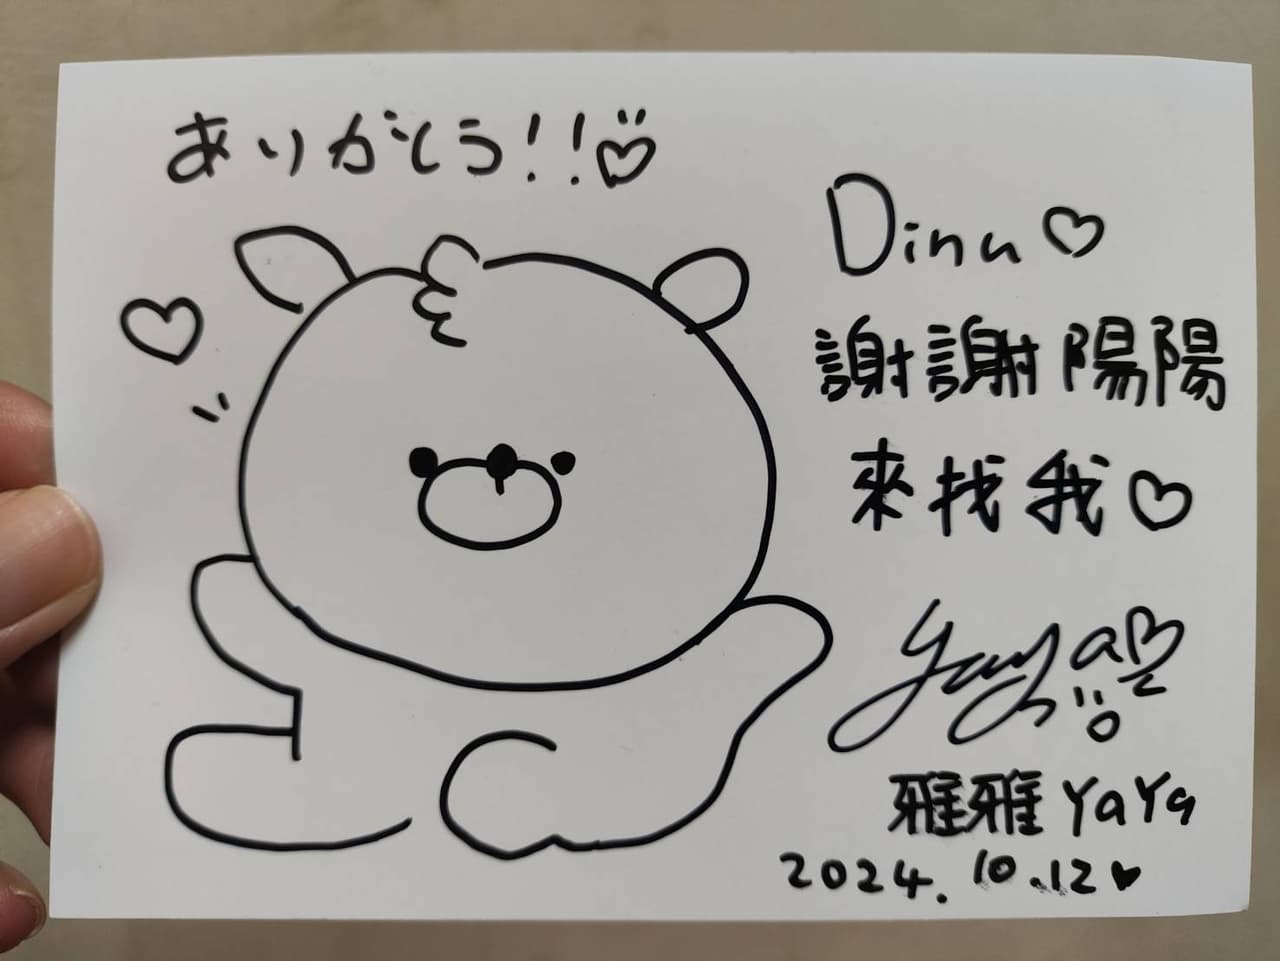 ありがとう!!♡
Dina♡
謝謝陽陽
來找我♡
yaya
雅雅YaYa
2024.10.12♥